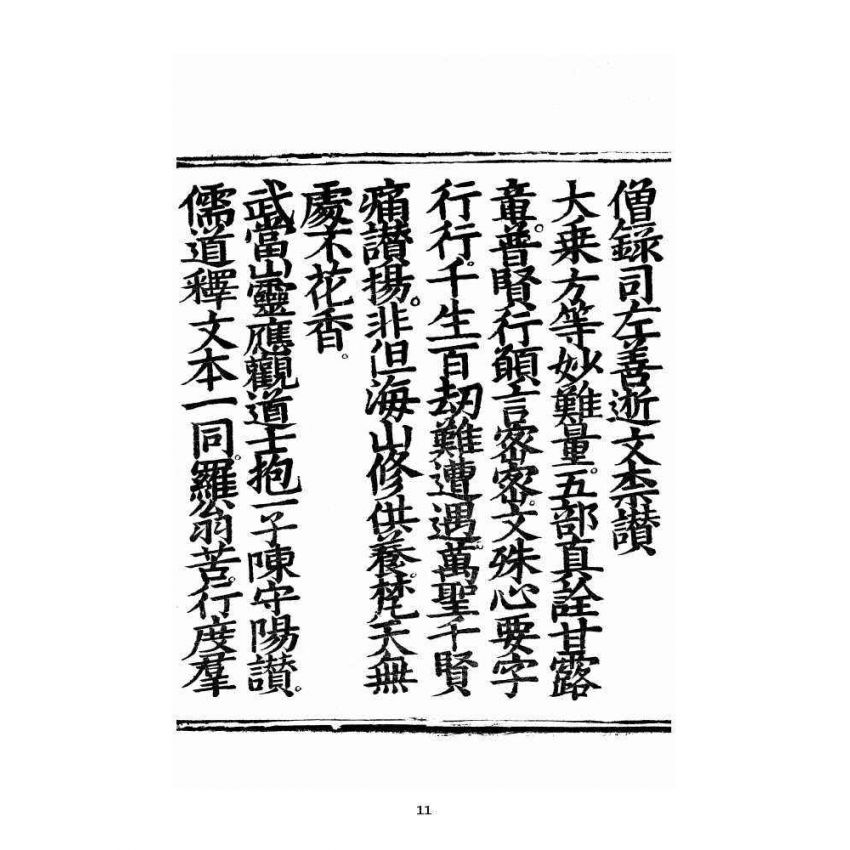 僧錄司左善逝文杰讃
大乗方等妙難量。五部真詮甘露
竜。普賢行願言密密。文殊心要字
行行。千生百劫難遭遇。萬聖千賢
痛讃揚。非但海山修供養。梵天無
處不花香。
武當山靈應觀道士抱一子陳守陽讃。
儒道釋文本一同。羅翁苦行度羣
11